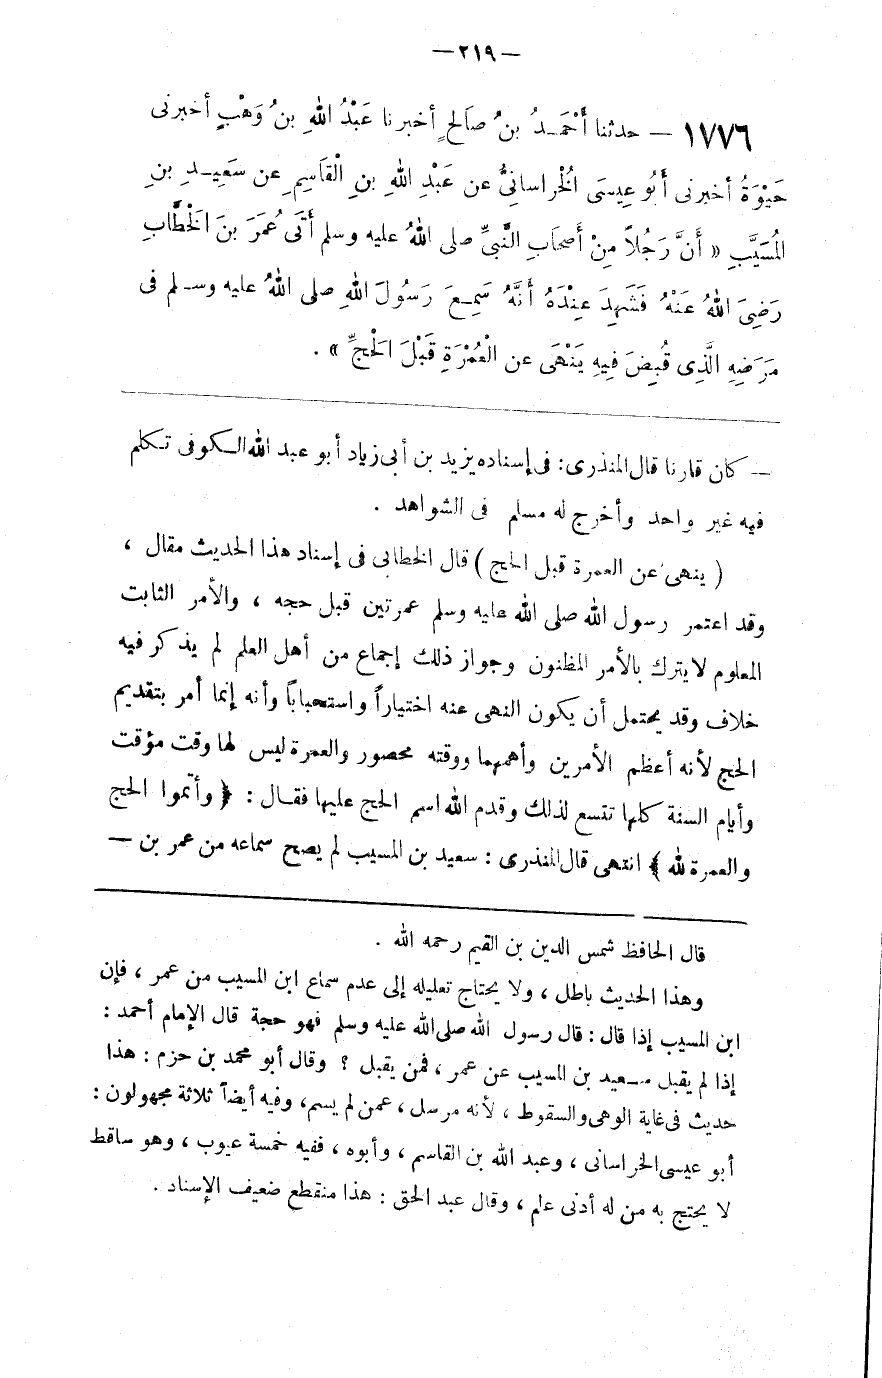 — ٢١٩ —
١٧٧٦ — حدثنا أَحْمَـدُ بنُ صَالحٍ أخبرنا عَبْدُ اللهِ بنُ وَهْبٍ أخبرنى
حَيْوَةُ أخبرنى أَبُو عِيسَى الْخُراسانِىُّ عن عَبْدِ اللهِ بنِ الْقَاسِمِ عن سَعِيـدِ بنِ
المُسَيَّبِ « أَنَّ رَجُلاً مِنْ أَصحَابِ النَّبىِّ صلى اللهُ عليه وسلم أَتَى عُمَرَ بنَ الْخطَّابِ
رَضِىَ اللهُ عَنْهُ فَشَهِدَ عِنْدَهُ أَنَّهُ سَمِـعَ رَسُولَ اللهِ صلى اللهُ عليه وسـلم فى
مَرَضِهِ الَّذِى قُبِضَ فِيهِ يَنْهَى عن الْعُمْرَةِ قَبْلَ الْحَجِّ » .
— كان قارنا قال المنذرى : فى إسناده يزيد بن أبى زياد أبو عبد الله الـكوفى تـكلم
فيه غير واحد وأخرج له مسلم فى الشواهد .
( ينهى عن العمرة قبل الحج ) قال الخطابى فى إسناد هذا الحديث مقال ،
وقد اعتمر رسول الله صلى الله عليه وسلم عمرتين قبل حجه ، والأمر الثابت
المعلوم لا يترك بالأمر المظنون وجواز ذلك إجماع من أهل العلم لم يذكر فيه
خلاف وقد يحتمل أن يكون النهى عنه اختياراً واستحباباً وأنه إنما أمر بتقديم
الحج لأنه أعظم الأمرين وأهمهما ووقته محصور والعمرة ليس لها وقت مؤقت
وأيام السنة كلها تتسع لذلك وقدم الله اسم الحج عليها فقـال : ﴿ وأتموا الحج
والعمرة لله ﴾ انتهى قال المنذرى : سعيد بن المسيب لم يصح سماعه من عمر بن —
قال الحافظ شمس الدين بن القيم رحمه الله .
وهذا الحديث باطل ، ولا يحتاج تعليله إلى عدم سماع ابن المسيب من عمر ، فإن
ابن المسيب إذا قال : قال رسول الله صلى الله عليه وسلم فهو حجة قال الإمام أحمد :
إذا لم يقبل سـعيد بن المسيب عن عمر ، فمن يقبل ؟ وقال أبو محمد بن حزم : هذا
حديث فى غاية الوهى والسقوط ، لأنه مرسل ، عمن لم يسم ، وفيه أيضاً ثلاثة مجهولون :
أبو عيسى الخراسانى ، وعبد الله بن القاسم ، وأبوه ، ففيه خمسة عيوب ، وهو ساقط
لا يحتج به من له أدنى علم ، وقال عبد الحق : هذا منقطع ضعيف الإسناد .